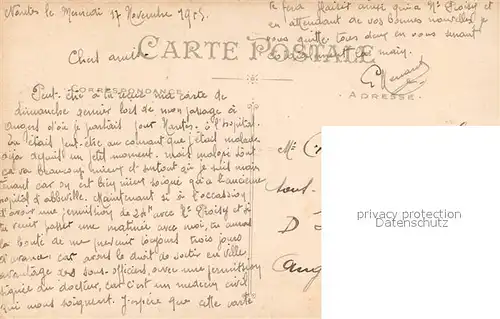 Nantes le Mercredi 17 Novembre 1915.
Cher ami
CARTE POSTALE
CORRESPONDANCE
Peut-être a tu reçue ma carte de
dimanche dernier lors de mon passage à
Angers d'où je partais pour Nantes à l'hôpital.
Tu étais peut-être au courant que j'étais malade
déjà depuis un petit moment. mais malgré tout
ça va beaucoup mieux et surtout où je suis main
tenant car on est bien mieux soigné qu'à l'ancien
hôpital d'abbeville. Maintenant si à l'occasion
d'avoir une permission de 24h avec Mr Froisy et si
tu veux passer une matinée avec moi, tu auras
la bonté de me prévenir toujours trois jours
d'avance car avons le droit de sortir en ville
avantage des sous-officiers, avec une permission
signée du docteur, car c'est un médecin civil
qui nous soignent. J'espère que cette carte
te fera plaisir ainsi qu'a Mr Froisy et
en attendant de vos bonnes nouvelles je
vous quitte tous deux en vous serrant
la main.
ADRESSE
Mr
D
Ang
privacy protection
Datenschutz